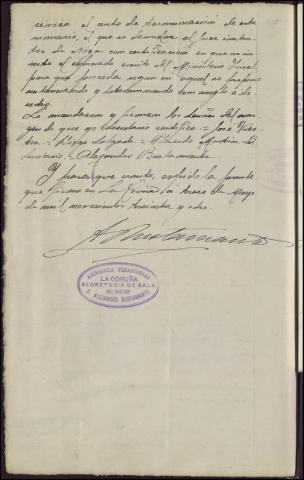 el auto de terminación de este
sumario, el que se devolverá al Juez instruc-
tor de Noya con certificación en que se in-
serte el expresado escrito del Ministerio Fiscal
para que proceda según en aquel se
y con arreglo á de-
recho.
Lo mandaron y firman los Señores del mar-
gen de que yo Secretario certifico = José
= Salgado = Martín = El
Secretario, Alejandro Bustamante
Y para que conste, expido la presente
que firmo en La Coruña á trece de Mayo
de mil novecientos treinta y ocho.
A Bustamante
AUDIENCIA TERRITORIAL
LA CORUÑA
SECRETARIA DE SALA
DEL DOCTOR
D. ALEJANDRO BUSTAMANTE